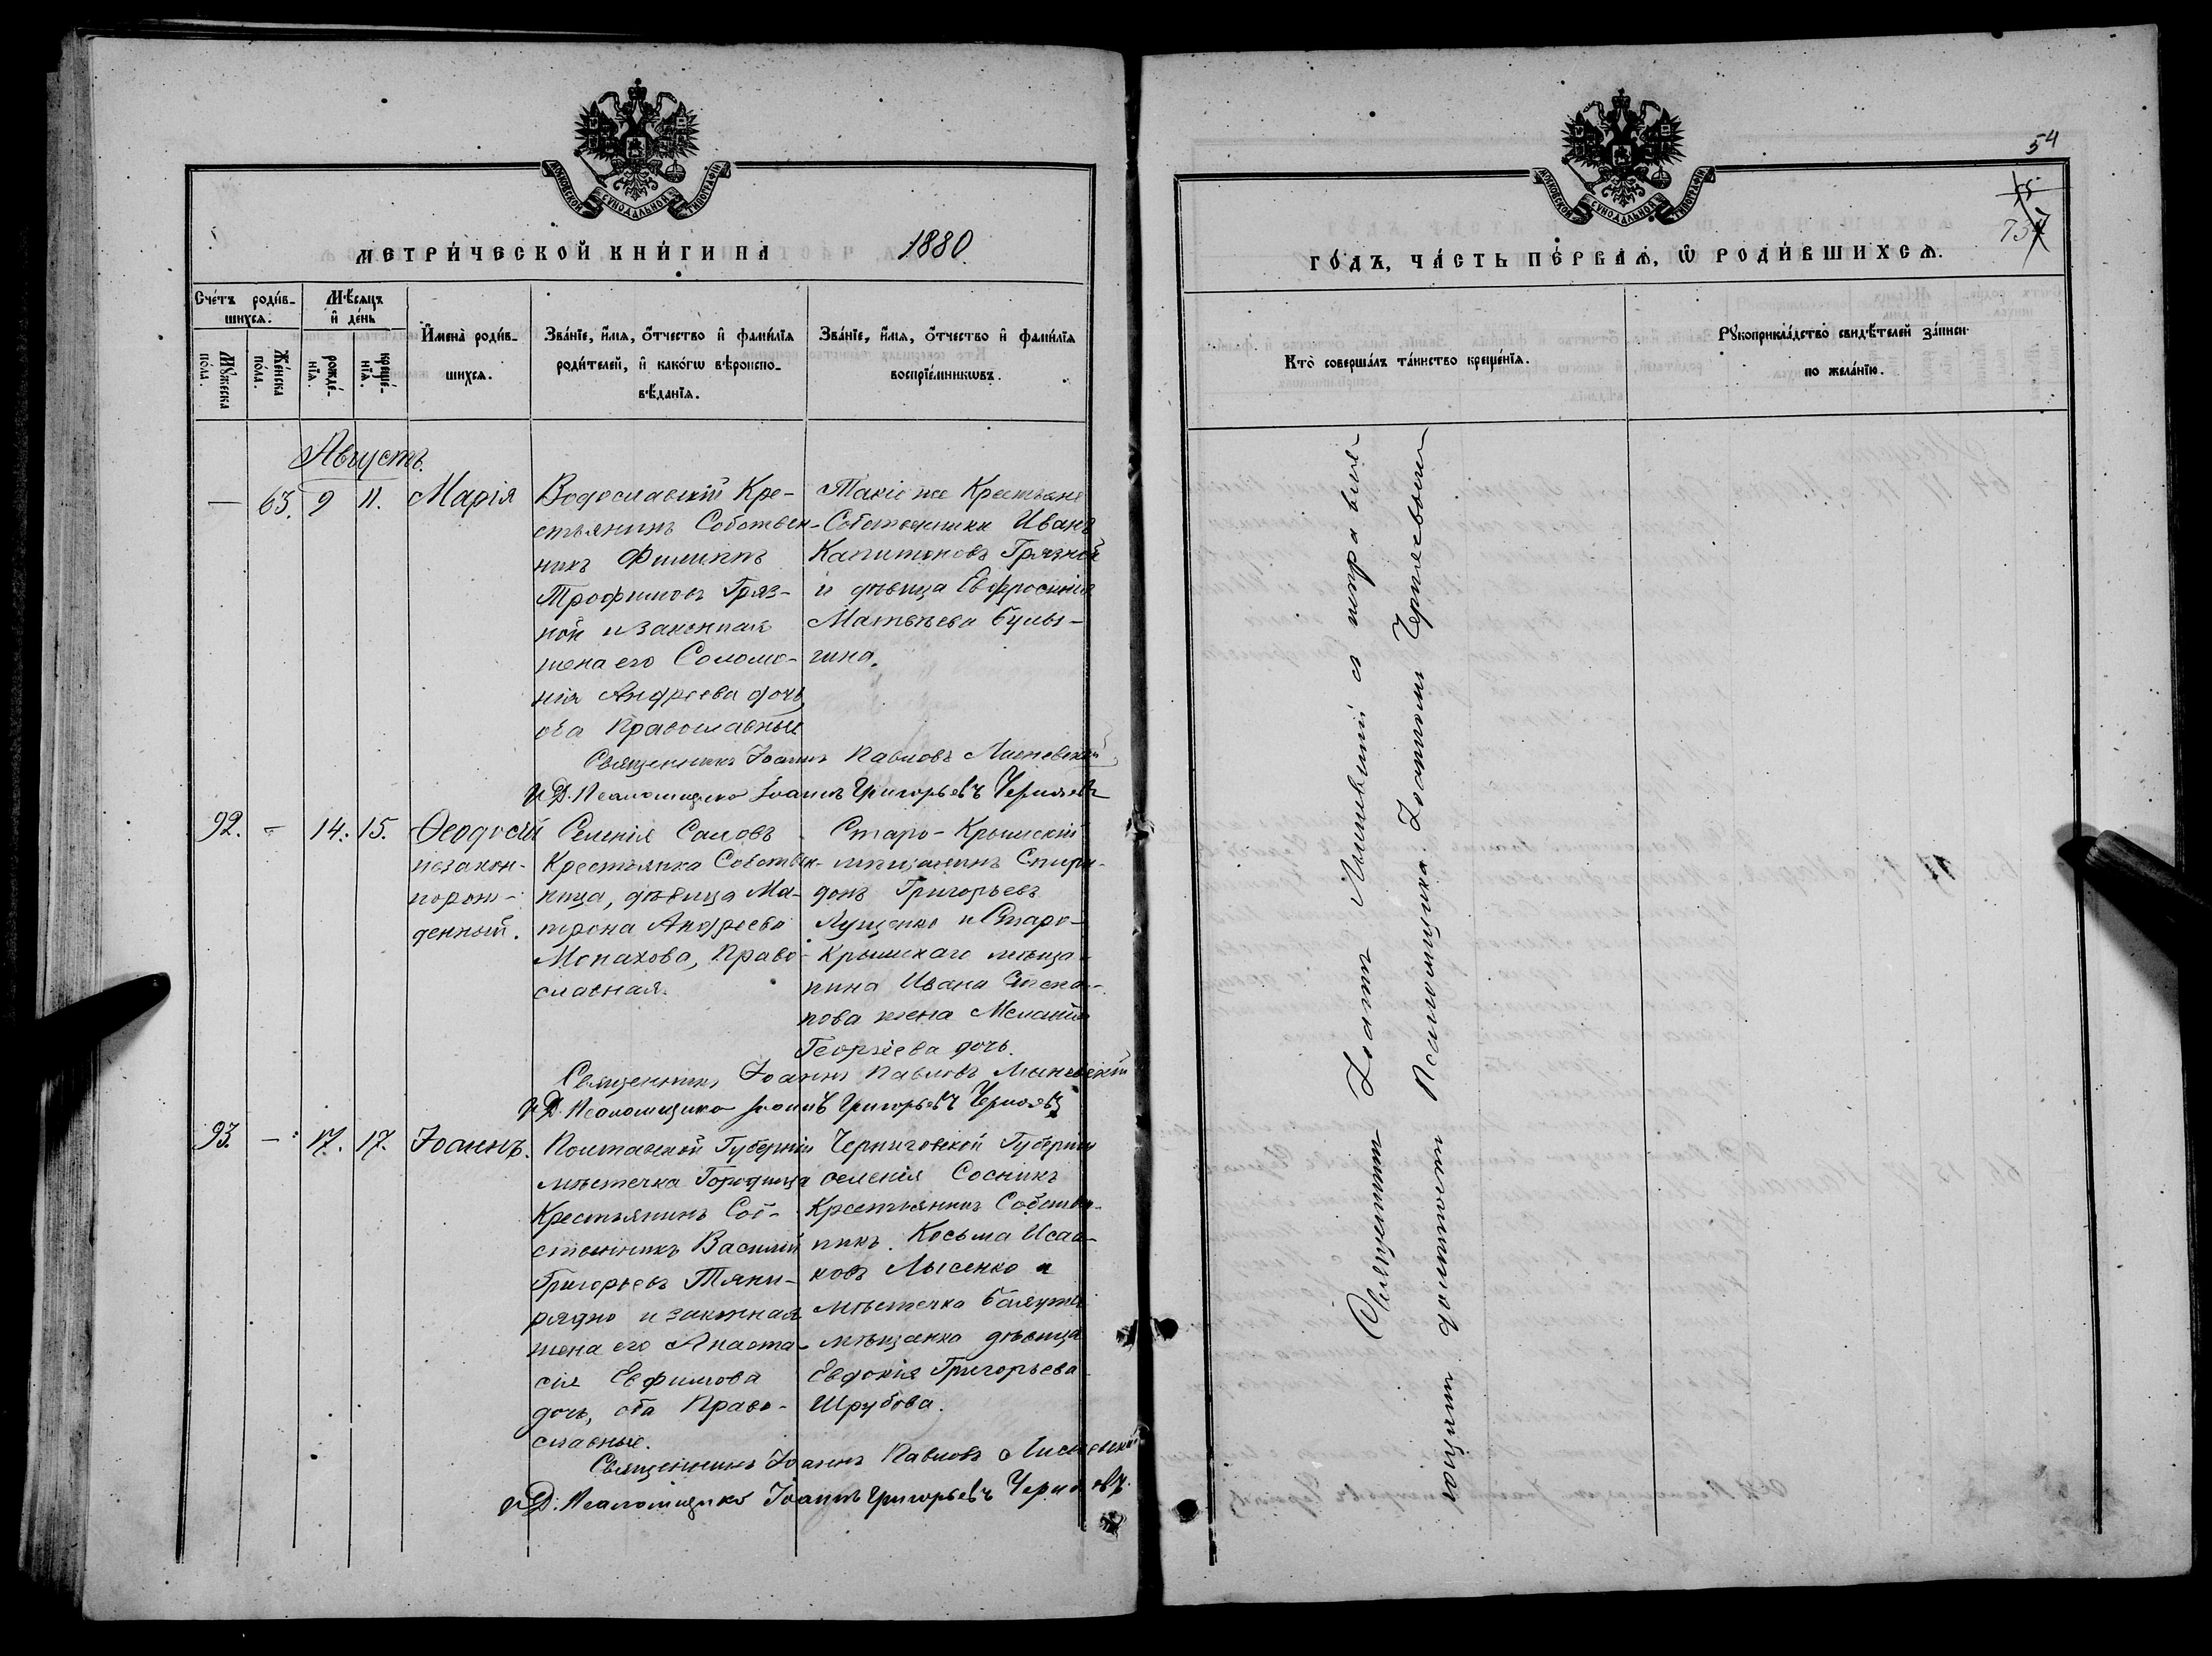 МОСКОВСКОЙ СѴНОДАЛЬНОЙ ТИПОГРАФІИ
МЕТРИ́ЧЕСКОЙ КНИ́ГИ НА 1880.
Сче́тъ роди́в-
шихсѧ.
Мѣ́сѧцъ
и҆ де́нь
Мꙋ́жеска
по́ла.
Же́нска
по́ла.
рожде́-
нїѧ.
креще́-
нїѧ.
И҆мена̀ роди́в-
шихсѧ.
Зва́нїе, и҆́мѧ, ѻ҆́тчество и҆ фами́лїѧ
роди́телей, и҆ како́гѡ вѣроиспо-
вѣ́данїѧ.
Зва́нїе, и҆́мѧ, ѻ҆́тчество и҆ фами́лїѧ
воспрїе́мникѡвъ.
Августъ.
— 63. 9 11. Марія
Водославскій Кре-
стьянинъ Собствен-
никъ Филиппъ
Трофимовъ Гряз-
ной и законная
жена его Соломо-
нія Андреева дочь
оба Православные
Такіе же Крестьяне
Собственники Иванъ
Капитоновъ Грязной
и дѣвица Евфросинія
Матвѣева Булы-
гина.
Священникъ Іоаннъ Павловъ
И. Д. Псаломщика Іоаннъ Григорьевъ Черняевъ
92. - 14. 15. Ѳеодосій
незакон-
норож-
денный.
Селенія Саловъ
Крестьянка Собствен-
ница, дѣвица Ма-
трона Андреева
Монахова, Право-
славная.
Старо-Крымскій
мѣщанинъ Спири-
донъ Григорьевъ
Луценко и Старо-
Крымскаго мѣща-
нина Ивана Степа-
нова жена Меланія
Георгіева дочь.
Священникъ Іоаннъ Павловъ
И. Д. Псаломщика Іоаннъ Григорьевъ Черняевъ
93. — 17. 17. Іоаннъ.
Полтавской Губерніи
мѣстечка Городища
Крестьянинъ Соб-
ственникъ Василій
Григорьевъ Тяни-
рядно и законная
жена его Анаста-
сія Евфимова
дочь, оба Право-
славные.
Черниговской Губерніи
селенія Сосникъ
Крестьянинъ Собствен-
никъ Косьма Исаа-
ковъ Лысенко и
мѣстечка
мѣщанка дѣвица
Евдокія Григорьева
Шрубова.
Священникъ Іоаннъ Павловъ
И. Д. Псаломщика Іоаннъ Григорьевъ Черняевъ.
54
МОСКОВСКОЙ СѴНОДАЛЬНОЙ ТИПОГРАФІИ
ГО́ДЪ, ЧА́СТЬ ПЕ́РВАѦ, Ѡ҆ РОДИ́ВШИХСѦ.
Кто̀ соверша́лъ та́инство креще́нїѧ.
Рꙋкоприкла́дство свидѣ́телей за́писи
по жела́нїю.
Священникъ Іоаннъ с исправляю-
щимъ должность Псаломщика Іоанномъ Черняевымъ